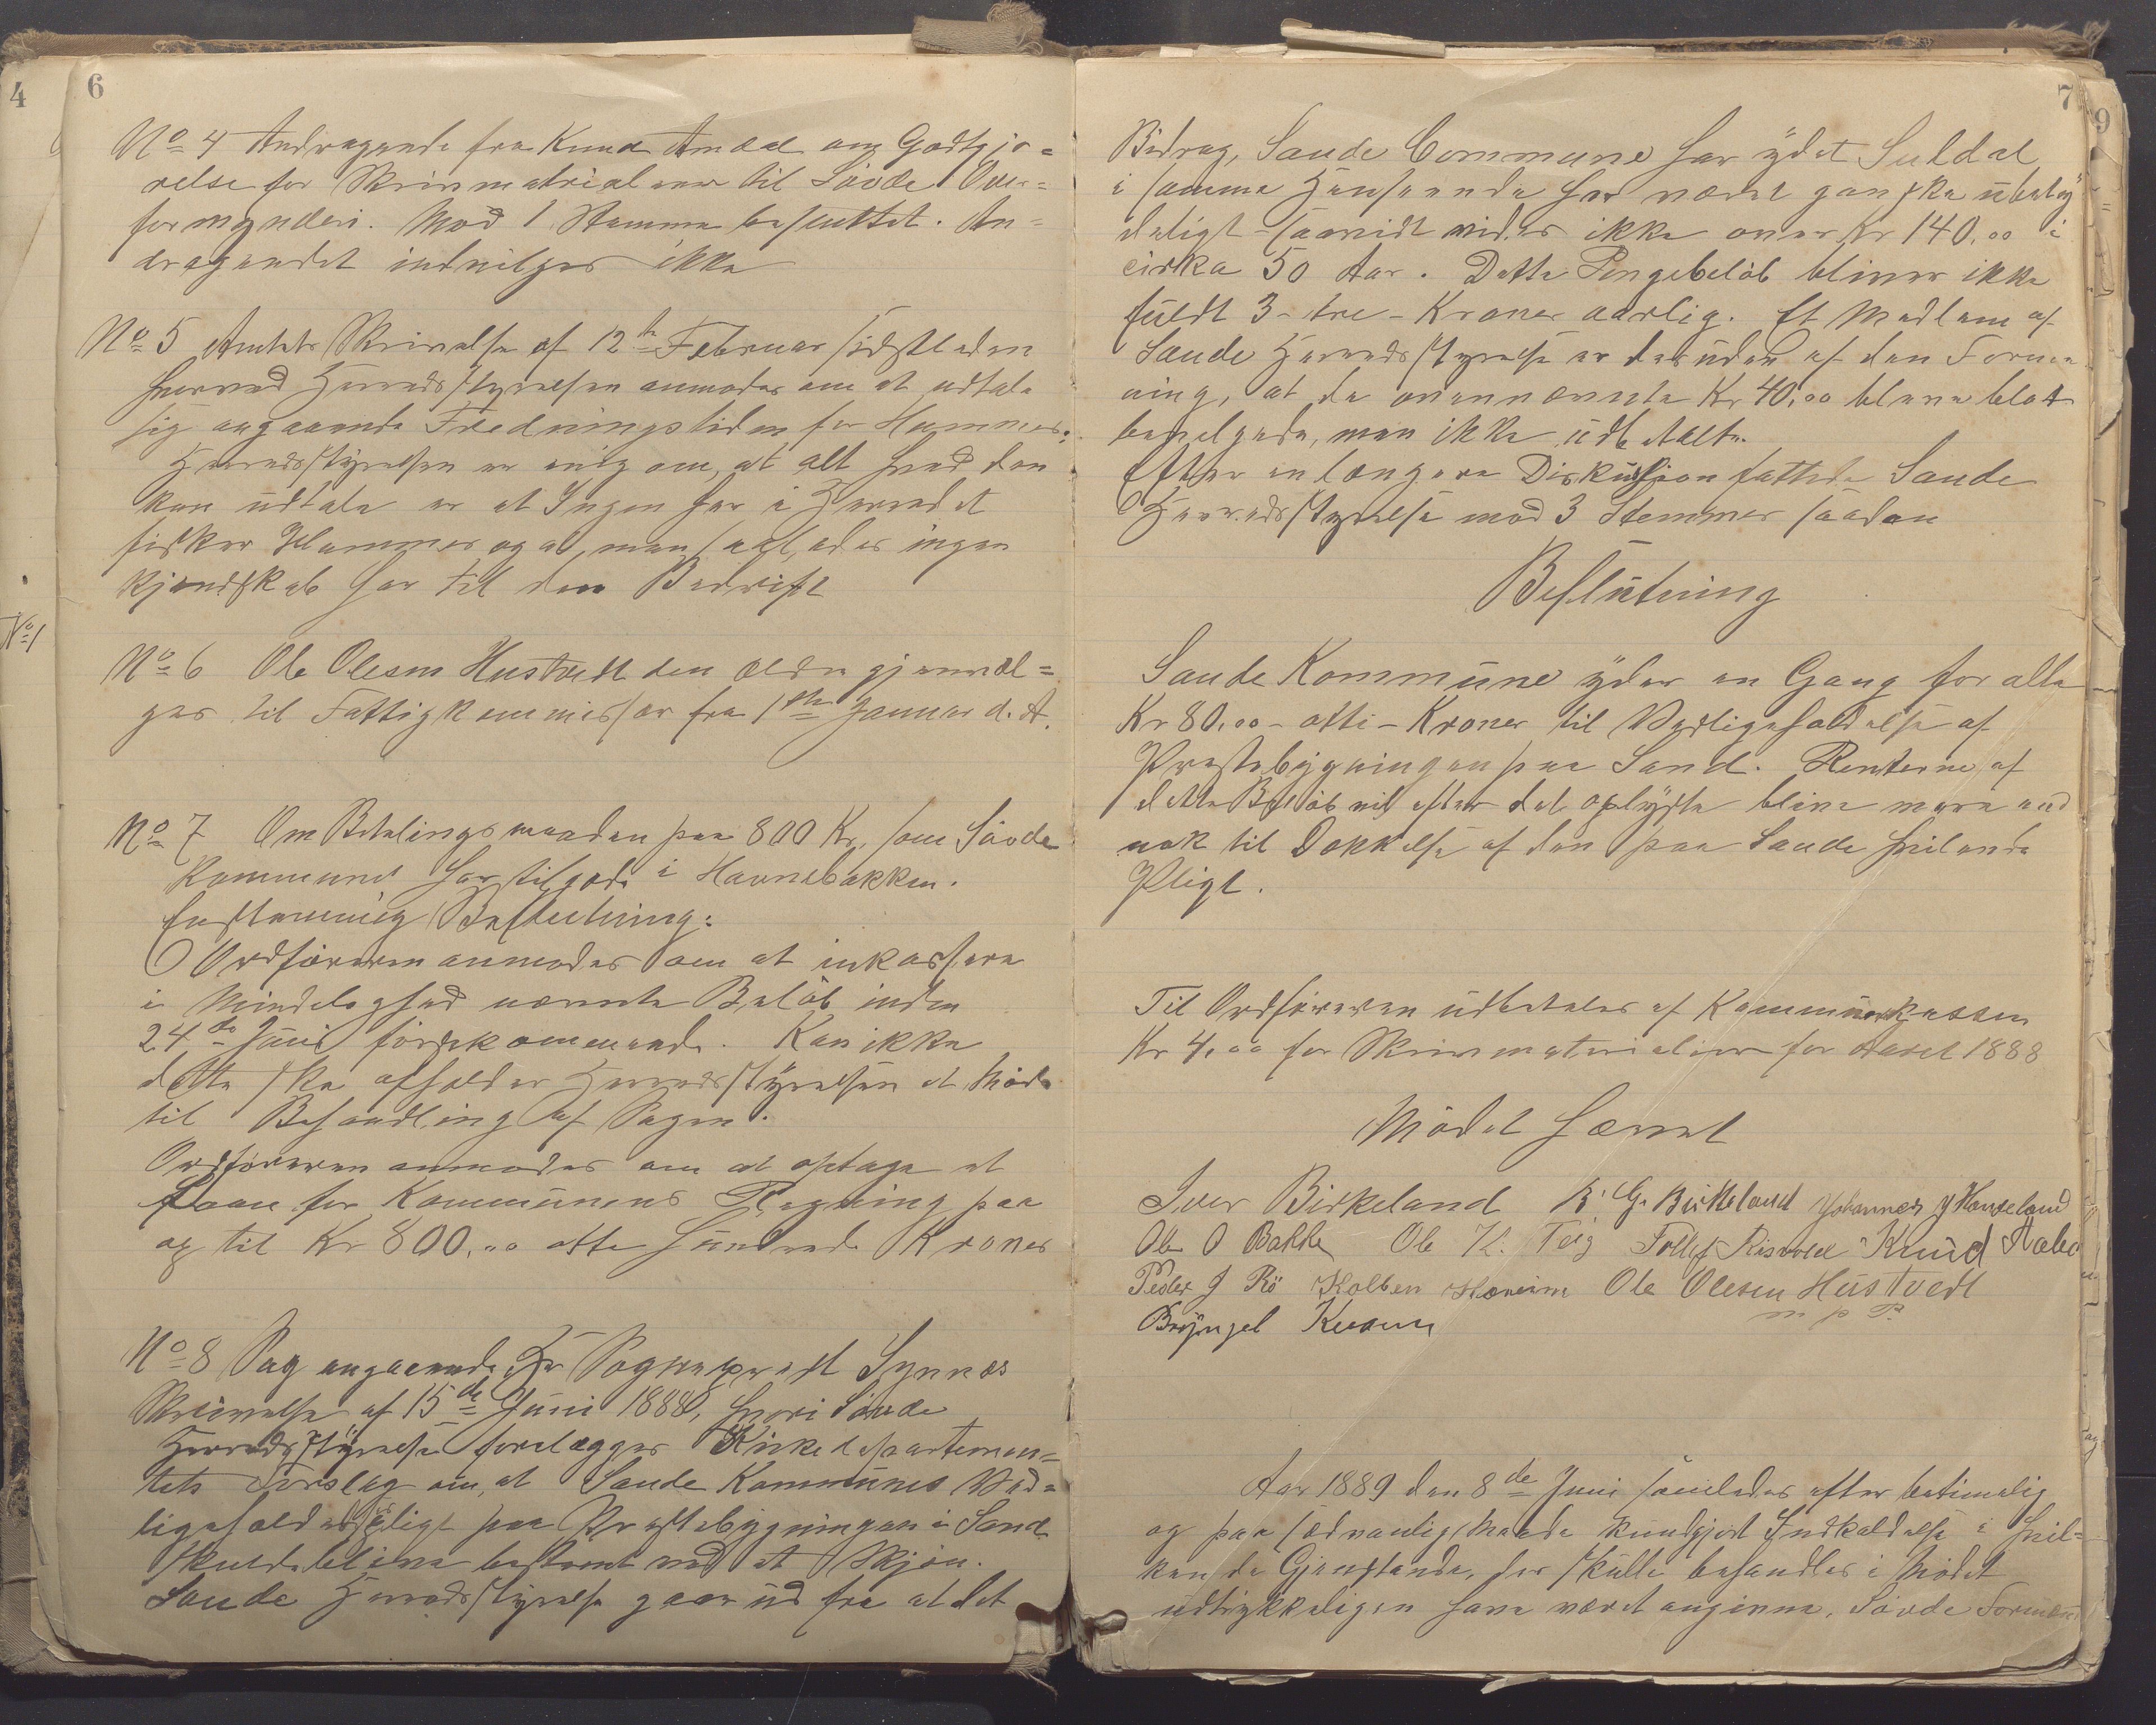 4
6
No 4 Andragende fra Knud Amdal ang Godtgjø=
relse for Skrivmatrialiaer til Søvde Over=
formynderi. Mod 1 Stemme besluttet. An=
dragendet indvilges ikke
No 5 Amtets Skrivelse af 12te Februar sidstleden
hvorved Herredsstyrelsen anmodes om at udtale
sig angaaende Fredningstiden for Hummer.
Herredsstyrelsen er enig om, at alt hvad den
kan udtale er at Ingen her i Herredet
fisker Hummer og at man saaledes ingen
Kjendskab har til den Bedrift
No 1
No 6 Ole Olesen Hustvedt den ældre gjenvæl=
ges til Fattigkommissær fra 1ste Januar d. A.
No 7 Om Betalingsmaaden paa 800 Kr. som Søvde
Kommune har tilgode i Havnebakken.
Enstemmig Beslutning:
Ordføreren anmodes om at inkassere
i Mindelighed nævnte Beløb inden
24de Juni førstkommende. Kan ikke
dette ske afholder Herredsstyrelsen et Møde
til Behandling af Sagen.
Ordføreren anmodes om at optage et
Laan for Kommunens Regning paa
og til Kr 800,00 otte hundrede Kroner
No 8 Sag angaaende Hr Sognepræst Synnes
Skrivelse af 15de Juni 1888, hvori Søvde
Herredsstyrelse forelægges Kirkedepartemen=
tets Forslag om, at Saude Kommunes Ved=
ligeholdespligt paa Præstebygningen i Sand
skulde blive bestemt ved et Skjøn.
Saude Herredsstyrelse gaar ud fra at det
7
9
Bidrag, Saude Commune har ydet Suldal
i samme Henseende har været ganske ubety
deligt - saavidt vides ikke over Kr 140,00 i
cirka 50 Aar. Dette Pengebeløb bliver ikke
fuldt 3 - tre - Kroner aarlig. Et Medlem af
Saude Herredsstyrelse er desuden af den Forme
ning, at de ovennævnte Kr 40,00 bleve blot
bevilgede, men ikke udbetalte.
Efter en længere Diskussion fattede Saude
Herredsstyrelse mod 3 Stemmer saadan
Beslutning
Saude Kommune yder en Gang for alle
Kr 80,00 - otti - Kroner til Vedligeholdelse af
Præstebygningen paa Sand. Renterne af
dette Beløb vil efter det oplyste blive mere end
nok til Dækkelse af den paa Saude hvilende
Pligt.
Til Ordføreren udbetales af Kommunekassen
Kr 4,00 for Skrivmaterialier for Aaret 1888
Mødet hævet
Iver Birkeland R. G. Birkeland Johannes J Hauseland
Ole O Bakke Ole K. Teig Tollef Risvold Knud Aabø
Peder J Rö Kolben Hæreim Ole Olesen Hustvedt
m p P.
Bryngel Kvarm
Aar 1889 den 8de Juni samledes efter betimelig
og paa sædvanlig Maade kundgjort Indkaldelse i hvil=
ken de Gjenstande, der skulle behandles i Mødet
udtrykkeligen have været angivne, Søvde Formænd